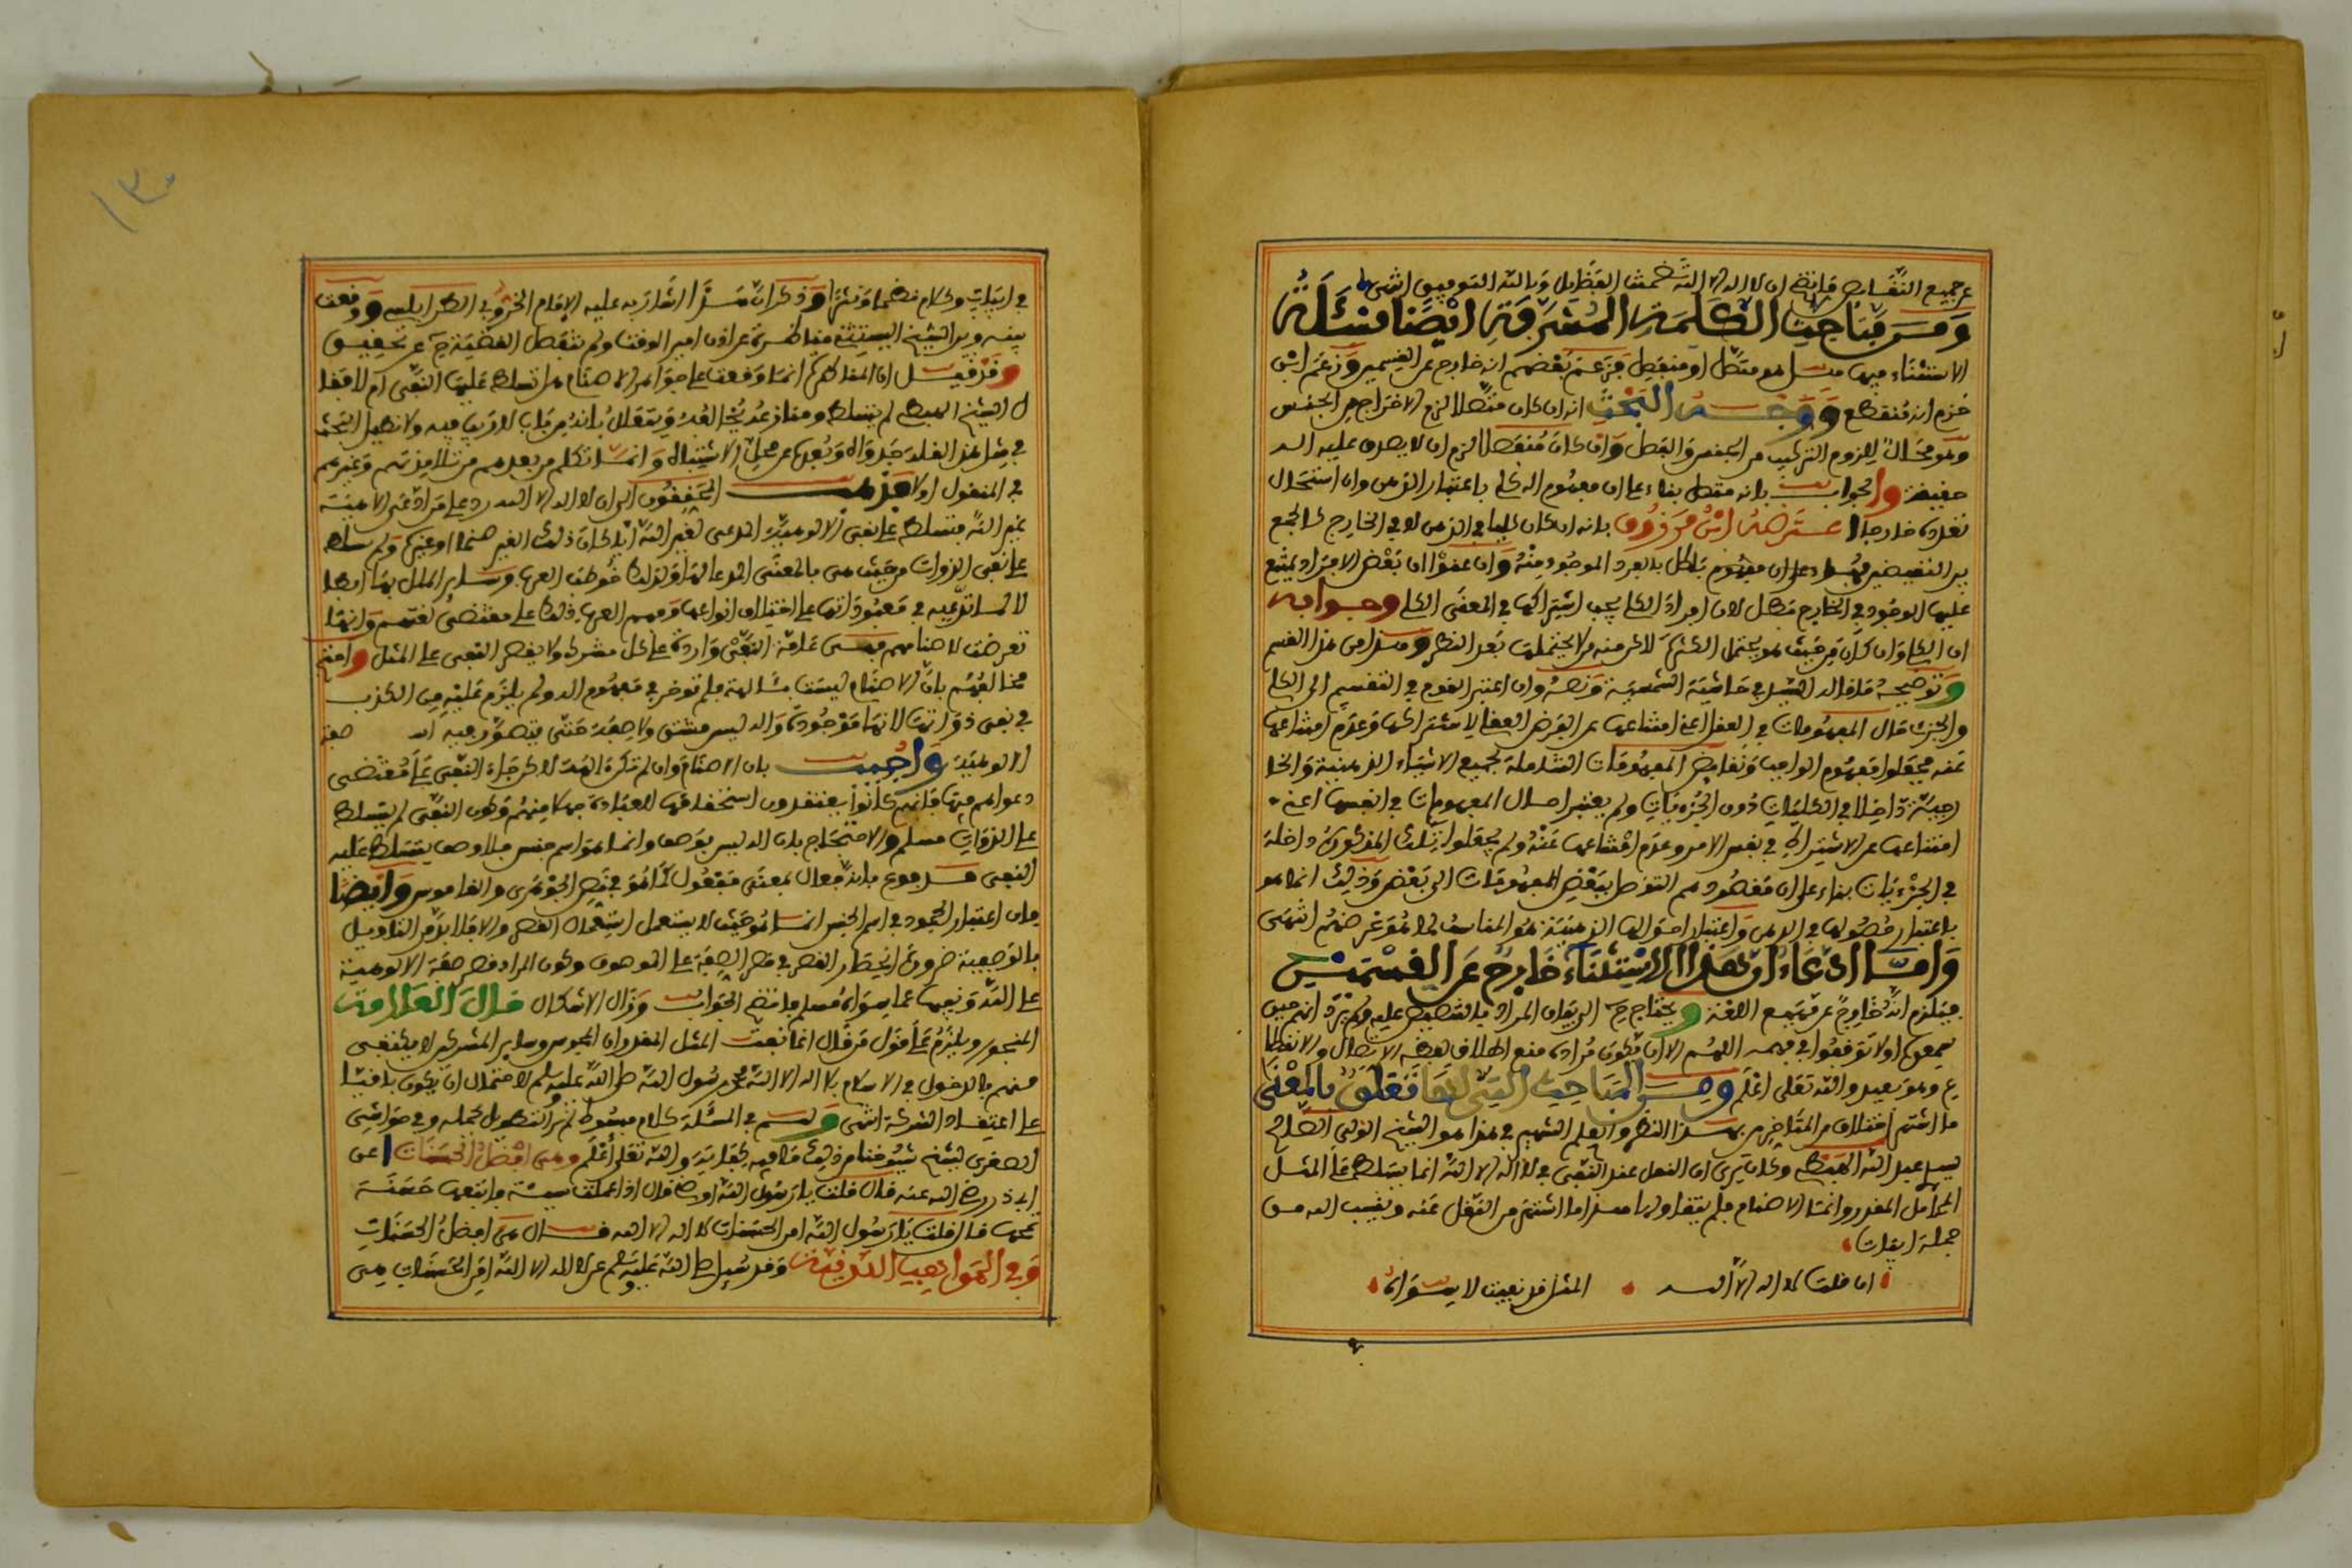 عن جميع النقايص فاتضح ان لا اله الا الله تضمنت الفضايل وبالله التوفيق انتهى
ومن مباحث الكلمة المشرفة ايضا مسئلة
الاستثناء فيها هل هو متصل او منفصل فزعم بعضهم انه خارج عن القسمين وزعم ابن
حزم انه منقطع ووجه البحث انه ان كان متصلا لزم الاخراج من الجنس
وهو محال للزوم التركيب من الجنس والفصل وان كان منقطعا لزم ان لا يصدق عليه اله
حقيقة والجواب بانه متصل بناء على ان مفهوم اله كلي باعتبار الذهن وان استحال
تعدده خارجا اعترضه ابن مرزوق بانه ان كان كليا في الذهن لا في الخارج كالجمع
بين النقيضين على ان مفهوم باطل بالفرد الموجود منه وان عنوا ان بعض الافراد يمتنع
عليها الوجود في الخارج بطل لان افراد الكلي يجب اشتراكها في المعنى الكلي وجوابه
ان الكلي وان كان من حيث هو يحتمل الكثرة لاكن منه ما لا يحتملها بعد النظر وهذا من هذا القسم
وتوضيحه ما قال السيد في حاشية الشمسية ونصه وان اعتبر القوم في التقسيم الى الكلي
والجزئي حال المفهومات في العقل اعني امتناعها عن الفرض العقلي لاشتراكها وعدم امتناعها
عنه فجعلوا مفهوم الواجب ونقايض المفهومات الشاملة لجميع الاشياء الذهنية والخا
رجية داخلا في الكليات دون الجزئيات ولم يعتبر احوال المفهومات في انفسها اعني
امتناعها عن الاشتراك في نفس الامر وعدم امتناعها عنه ولم يجعلوا تلك المفهومات داخلة
في الجزئيات بناء على ان مقصودهم التوصل ببعض المفهومات الى بعض وذلك انما هو
باعتبار حصولها في الذهن واعتبار احوالها الذهنية هو المناسب لما هو غرضهم انتهى
واما ادعاء ان هذا الاستثناء خارج عن القسمين
فيلزم انه خارج عن جميع اللغة ويحتاج حـ الى بيان المراد بالتنصيص عليه ولم يرد انهم حين
سمعوه اولا توقفوا في فهمه اللهم الا ان يكون مراده منع اطلاق لفظ الاتصال والانقطا
ع وهو بعيد والله تعلى اعلم ومن المباحث التي لها تعلق بالمعنى
ما اشتهر اختلاف من المتاخرين بهذا القطر والعلم الشهير في هذا هو الشيخ الولي الصالح
سيدي عبد الله الهبطي وكان يرى ان النفي عند النفي في لا اله الا الله انما يتسلط على المثل
الباطل المقدر وانما الاصنام فلم يتناولها هذا ما اشتهر من النقل عنه وينسب اليه من
جملة ابيات
ان قلت لا اله الا الله المثل قد نفيت لا سواه
في ابيات وكلام نظما ونثرا وذكر ان هذا اشار به عليه الامام الخروبي الطرابلسي ووقعت
بينه وبين الشيخ اليسيتني مناظرة عن اذن امير الوقت ولم تنفصل القضية حـ عن تحقيق
وقد قيل ان المناظرة انما وقعت على جواب الاصنام هل تسلط عليها النفي ام لا فقا
ل الشيخ الهبطي لم يتسلط ومنازعه يقول بانه من باب لا ريب فيه ولا نطيل البحث
في مثل هذا لقلة جدواه وبعده عن محل الاشتباه وانما تكلم من بعدهم من تلاميذهم وغيرهم
في المنقول اولا فذهب المحققون الى ان لا اله الا الله رد على من ادعى الالوهية
غير الله فتسلط على نفي الالوهية المدعى لغير الله ايا كان ذلك الغير صنما او غيره ولم يتسلط
على نفي الذوات من حيث هي بالمعنى المدعى لها ولذلك خوطب العرب وساير الملل بها ابطا
لا لما تدعيه في معبوداتها على اختلاف انواعها وفهم العرب ذلك على مقتضى لغتهم وانها
تعرضت لاصنامهم فبقى عامة النفي واردة على كل مشرك ولا يقصر النفي على المثل واحتج
مخالفهم بان الاصنام ليست بآلهة فلم تدخر في مفهوم اله ولم يلزم عليه من الكذب
في نفى ذواتها لانها موجودة واله ليس مشتق ولا صفة حتى يتصور فيه انه صفة
الالوهية واجيب بان الاصنام وان لم تكن الهة لاكن جاء النفي على مقتضى
دعواهم فيها فانهم كانوا يعتقدون استحقاقها للعبادة جهلا منهم وكون النفي لم يتسلط
على الذوات مسلم والاحتجاج بان اله ليس بوصف وانما هو اسم جنس فلا وصف يتسلط عليه
النفي مدفوع بانه فعال بمعنى مفعول كما هو في نص الجوهري والقاموس وايضا
فان اعتبار الجمود في اسم الجنس انما هو حيث لا يستعمل استعمال القصر والا فلا بد من التاويل
بالوصفية ضرورة انحصار القصر في قصر الصفة على الموصوف وكون المراد قصر صفة الالوهية
على الله ونفيها عما سواه مسلم فاتضح الجواب وزال الاشكال قال العلامة
المنجور ويلزم على قول من قال انما نفيت المثل المقدر ان المجوس وساير المشركين لا يكتفى
منهم بالدخول في الاسلام بلا اله الا الله محمد رسول الله صلى الله عليه وسلم لاحتمال ان يكون باقيا
على اعتقاد الشركة انتهى وله في المسئلة كلام مبسوط لم نر التطويل بجلبه وفي حواشي
الصغرى لشيخ شيوخنا من ذلك ما فيه كفاية والله تعلى اعلم وهي افضل الحسنات اعنى
ابي ذر رضي الله عنه قال قلت يا رسول الله اوصني قال اذا عملت سيئة فاتبعها حسنة
تمحها قال قلت يا رسول الله امن الحسنات لا اله الا الله قال هي افضل الحسنات
وفي المواهب اللدنية وقد سئل صلى الله عليه وسلم عن لا اله الا الله امن الحسنات هي
١٣٠